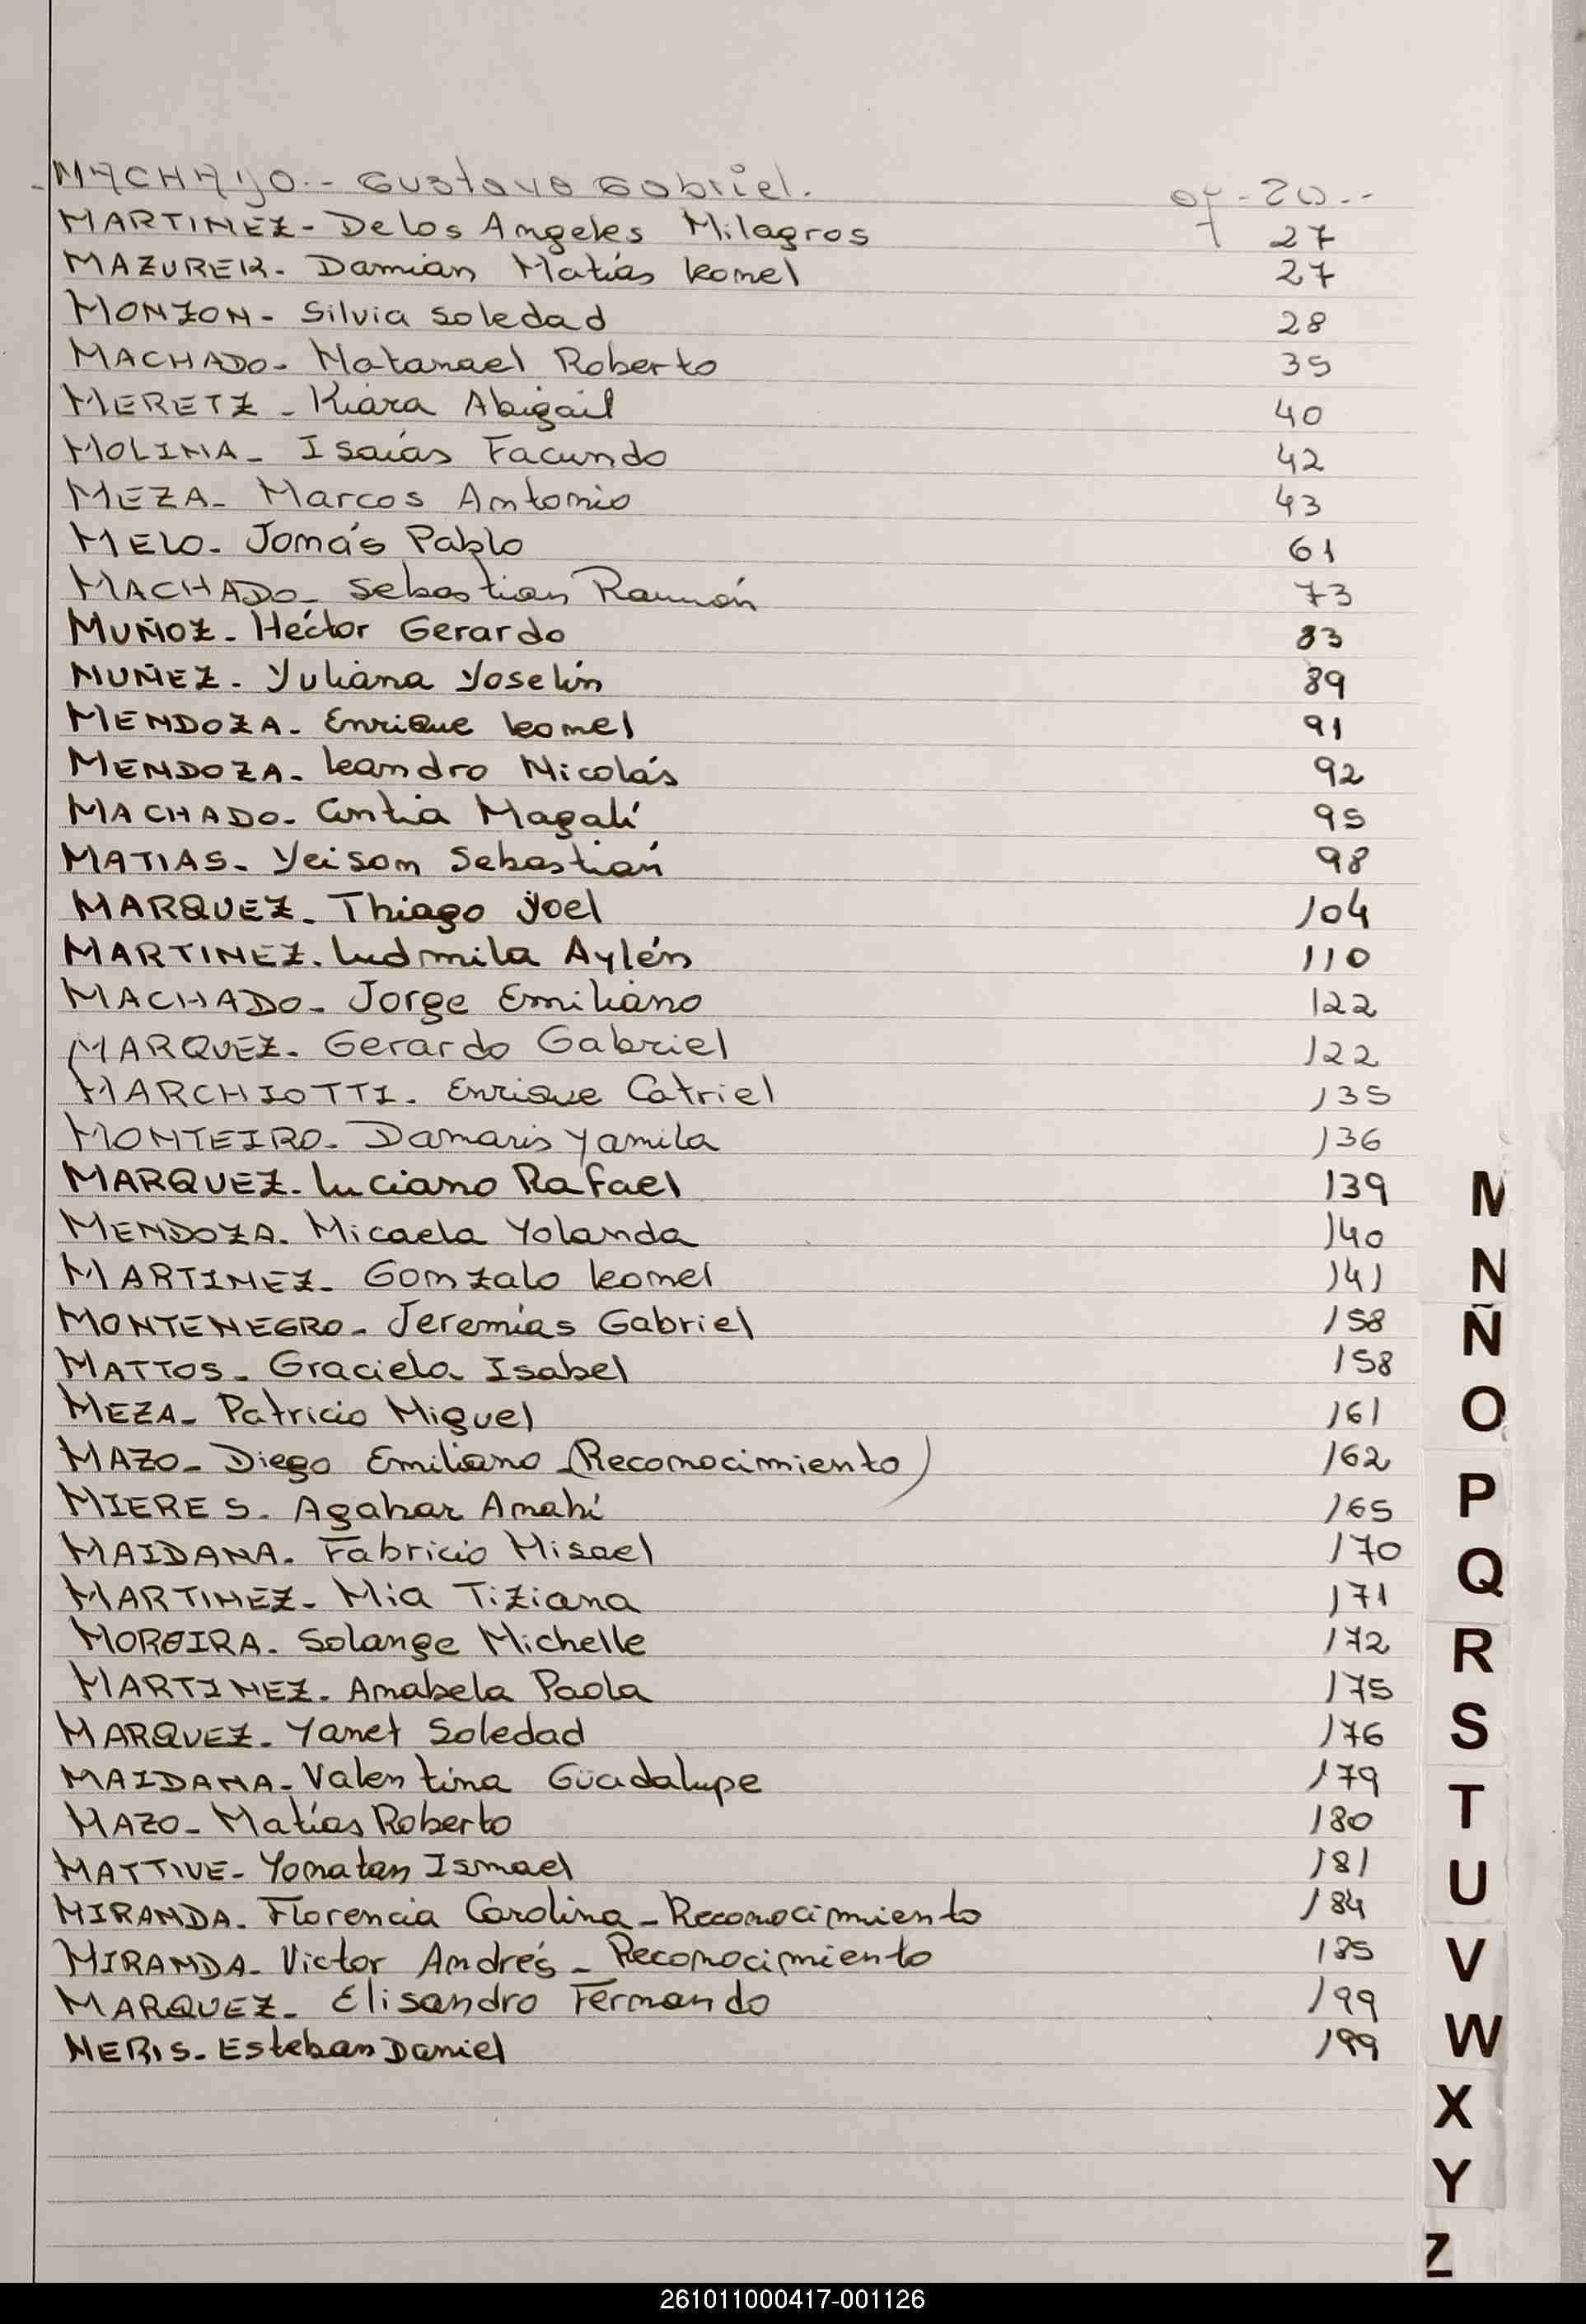 MACHADO.- Gustavo Gabriel. of - 20.-
MARTINEZ- De los Angeles Milagros 27
MAZUREK- Damian Matias Leonel 27
MONZON- Silvia Soledad 28
MACHADO- Natanael Roberto 35
MERETZ - Kiara Abigail 40
MOLINA- Isaías Facundo 42
MEZA- Marcos Antonio 43
MELO- Jonás Pablo 61
MACHADO- Sebastian Ramón 73
MUÑOZ- Héctor Gerardo 83
MUÑEZ- Yuliana Yoselin 89
MENDOZA- Enrique Leonel 91
MENDOZA- Leandro Nicolás 92
MACHADO- Cintia Magalí 95
MATIAS- Yeison Sebastián 98
MARQUEZ- Thiago Joel 104
MARTINEZ- Ludmila Aylén 110
MACHADO- Jorge Emiliano 122
MARQUEZ- Gerardo Gabriel 122
MARCHIOTTI- Enrique Catriel 135
MONTEIRO- Damaris Yamila 136
MARQUEZ- Luciano Rafael 139
MENDOZA- Micaela Yolanda 140
MARTINEZ- Gonzalo Leonel 141
MONTENEGRO- Jeremías Gabriel 158
MATTOS- Graciela Isabel 158
MEZA- Patricio Miguel 161
MAZO- Diego Emiliano (Reconocimiento) 162
MIERES- Agahar Anahí 165
MAIDANA- Fabricio Misael 170
MARTINEZ- Mia Tiziana 171
MOREIRA- Solange Michelle 172
MARTINEZ- Anabela Paola 175
MARQUEZ- Yanet Soledad 176
MAIDANA- Valentina Guadalupe 179
MAZO- Matías Roberto 180
MATTIVE- Yonatan Ismael 181
MIRANDA- Florencia Carolina - Reconocimiento 184
MIRANDA- Victor Andrés - Reconocimiento 185
MARQUEZ- Elisandro Fernando 199
NERIS- Esteban Daniel 199
M
N
Ñ
O
P
Q
R
S
T
U
V
W
X
Y
Z
261011000417-001126